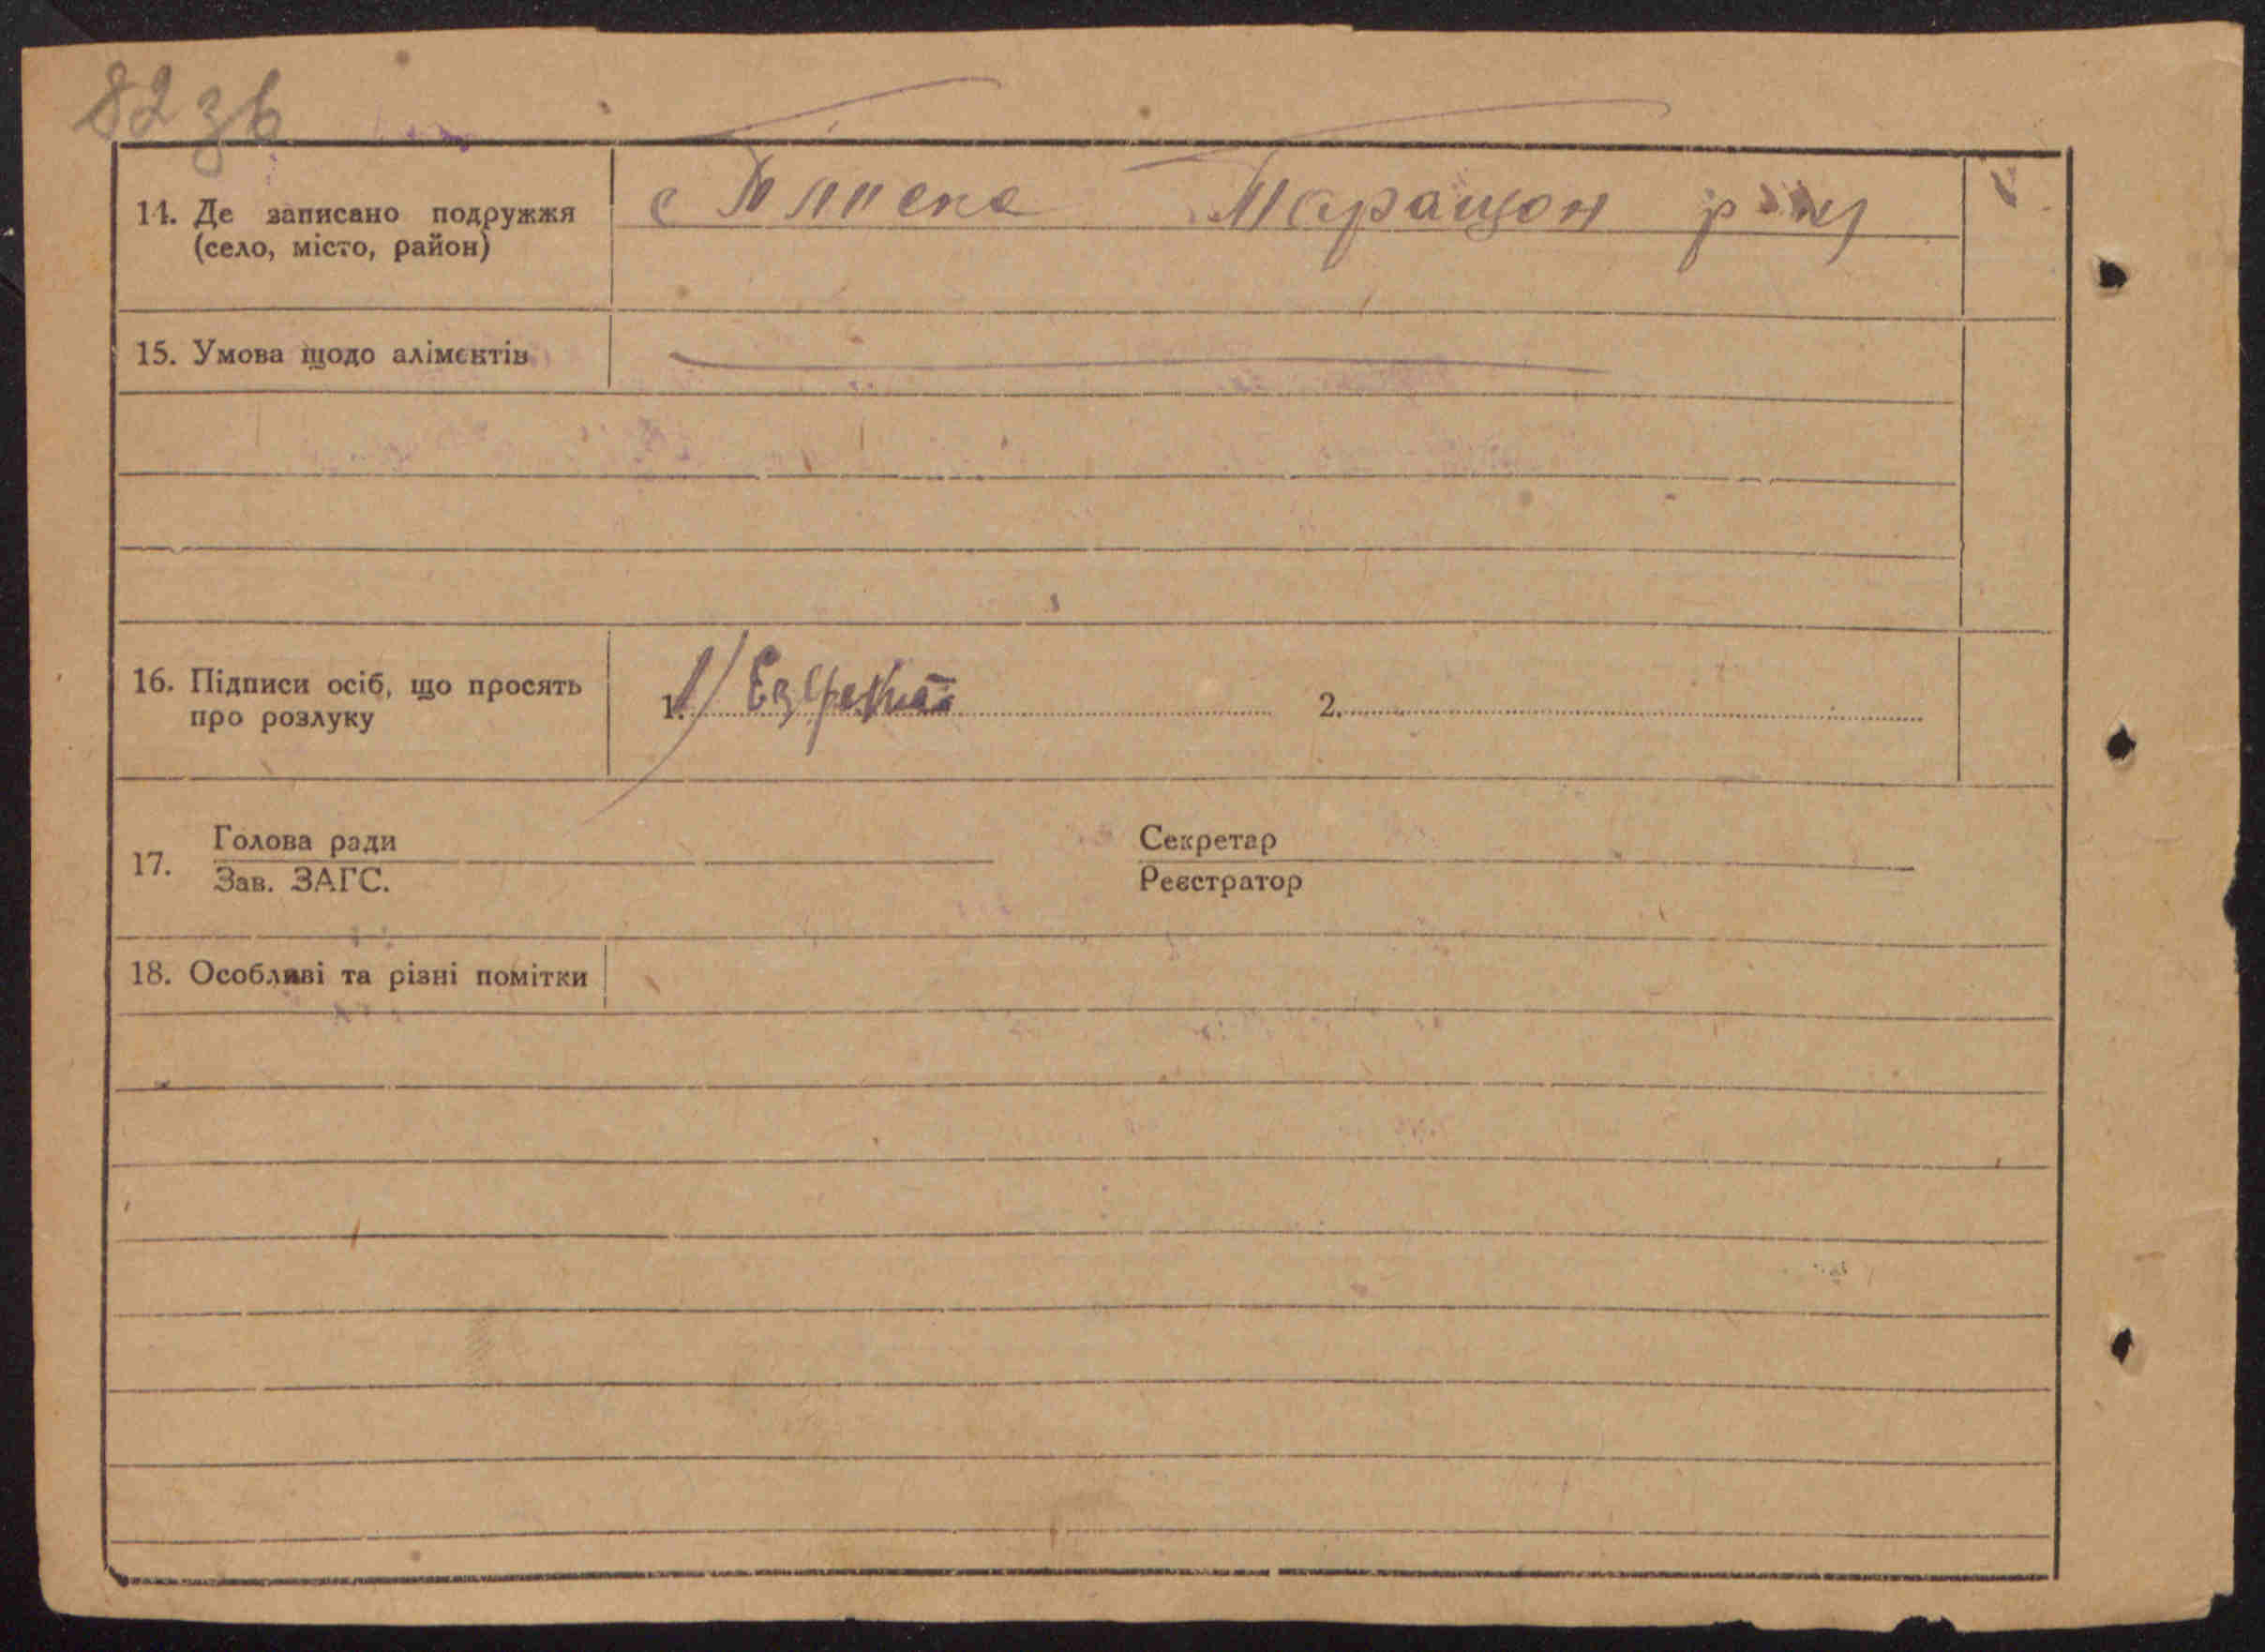 82 зв
14. Де записано подружжя
(село, місто, район)
с Таращан р-ну
15. Умова щодо аліментів
16. Підписи осіб, що просять
про розлуку
1. 2.
17. Голова ради Секретар
Зав. ЗАГС. Реєстратор
18. Особливі та різні помітки